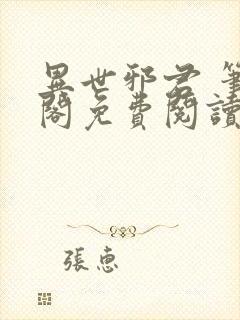 異世邪君 筆
閣免費閱讀
張惠